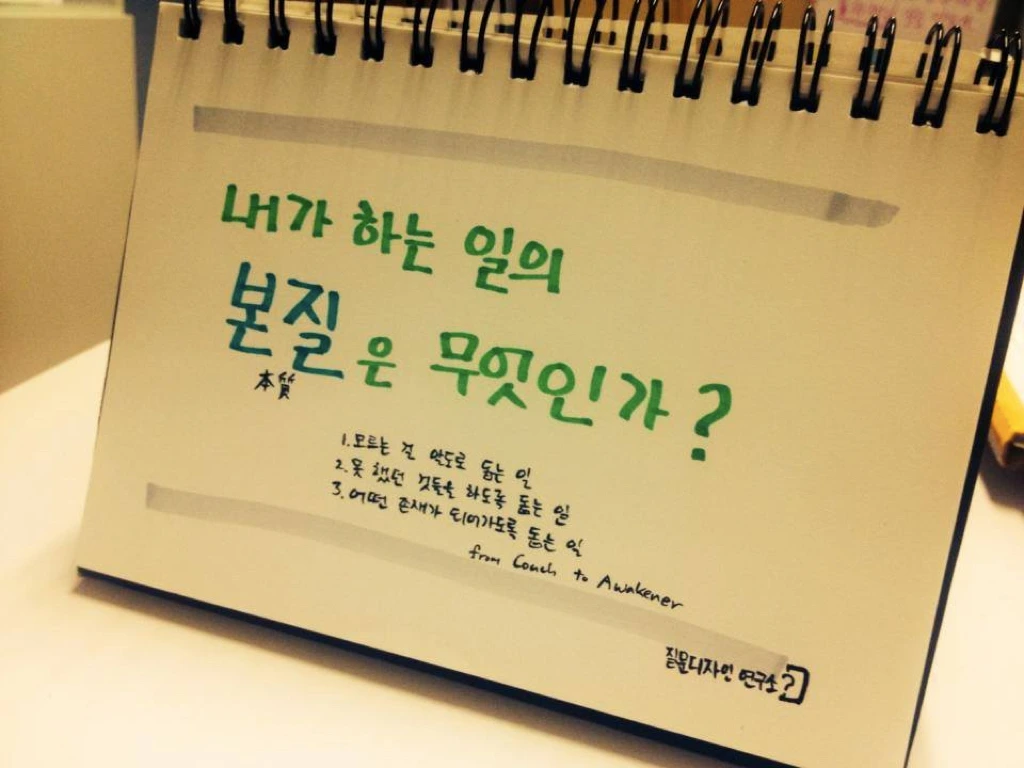 내가 하는 일의
본질은 무엇인가?
本質
1. 모르는 걸 알도록 돕는 일
2. 못 했던 것들을 하도록 돕는 일
3. 어떤 존재가 되어가도록 돕는 일
from Coach to Awakener
질문디자인 연구소?